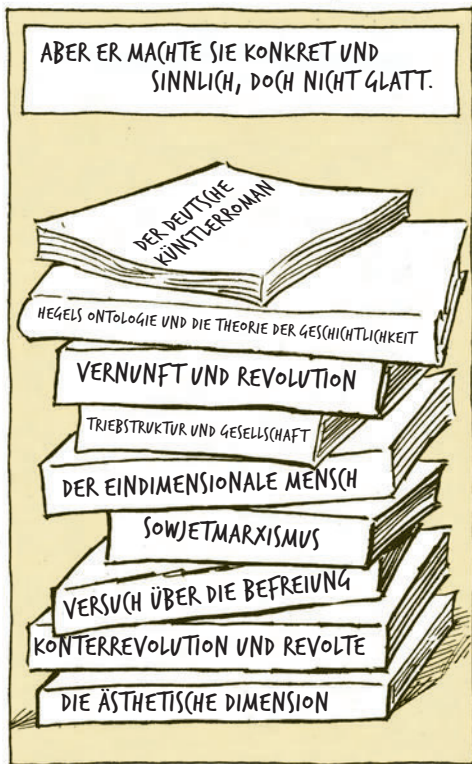 ABER ER MACHTE SIE KONKRET UND
SINNLICH, DOCH NICHT GLATT.
DER DEUTSCHE
KÜNSTLERROMAN
HEGELS ONTOLOGIE UND DIE THEORIE DER GESCHICHTLICHKEIT
VERNUNFT UND REVOLUTION
TRIEBSTRUKTUR UND GESELLSCHAFT
DER EINDIMENSIONALE MENSCH
SOWJETMARXISMUS
VERSUCH ÜBER DIE BEFREIUNG
KONTERREVOLUTION UND REVOLTE
DIE ÄSTHETISCHE DIMENSION